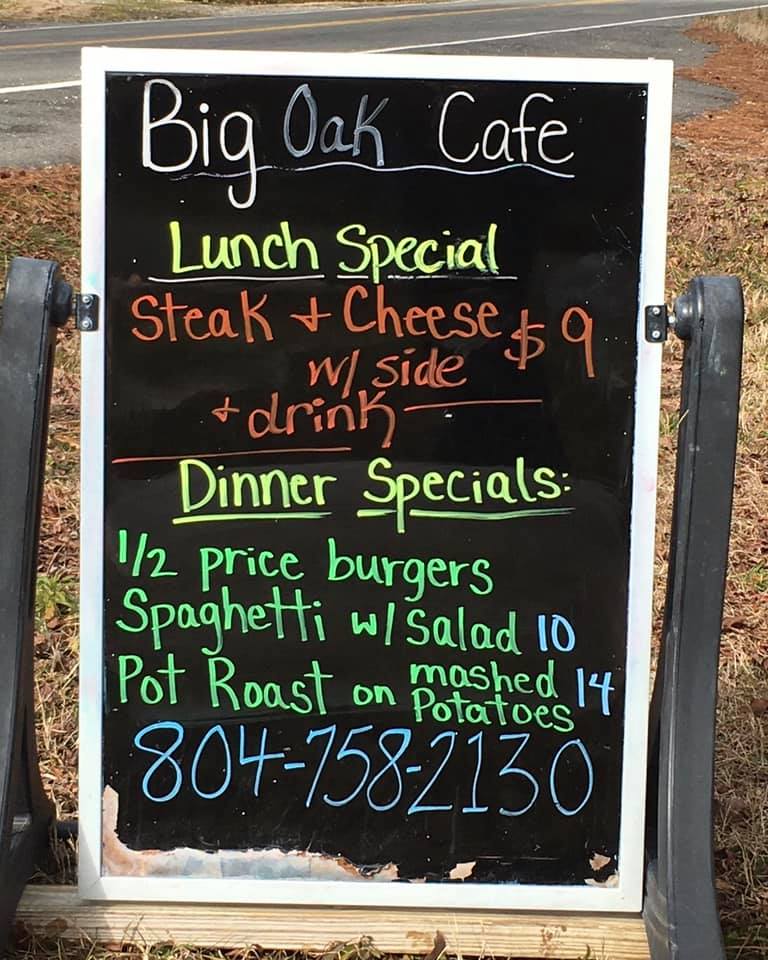 Big Oak Cafe
Lunch Special
Steak + Cheese $9
w/ side
+ drink
Dinner Specials:
1/2 price burgers
Spaghetti w/ Salad 10
Pot Roast on mashed Potatoes 14
804-758-2130